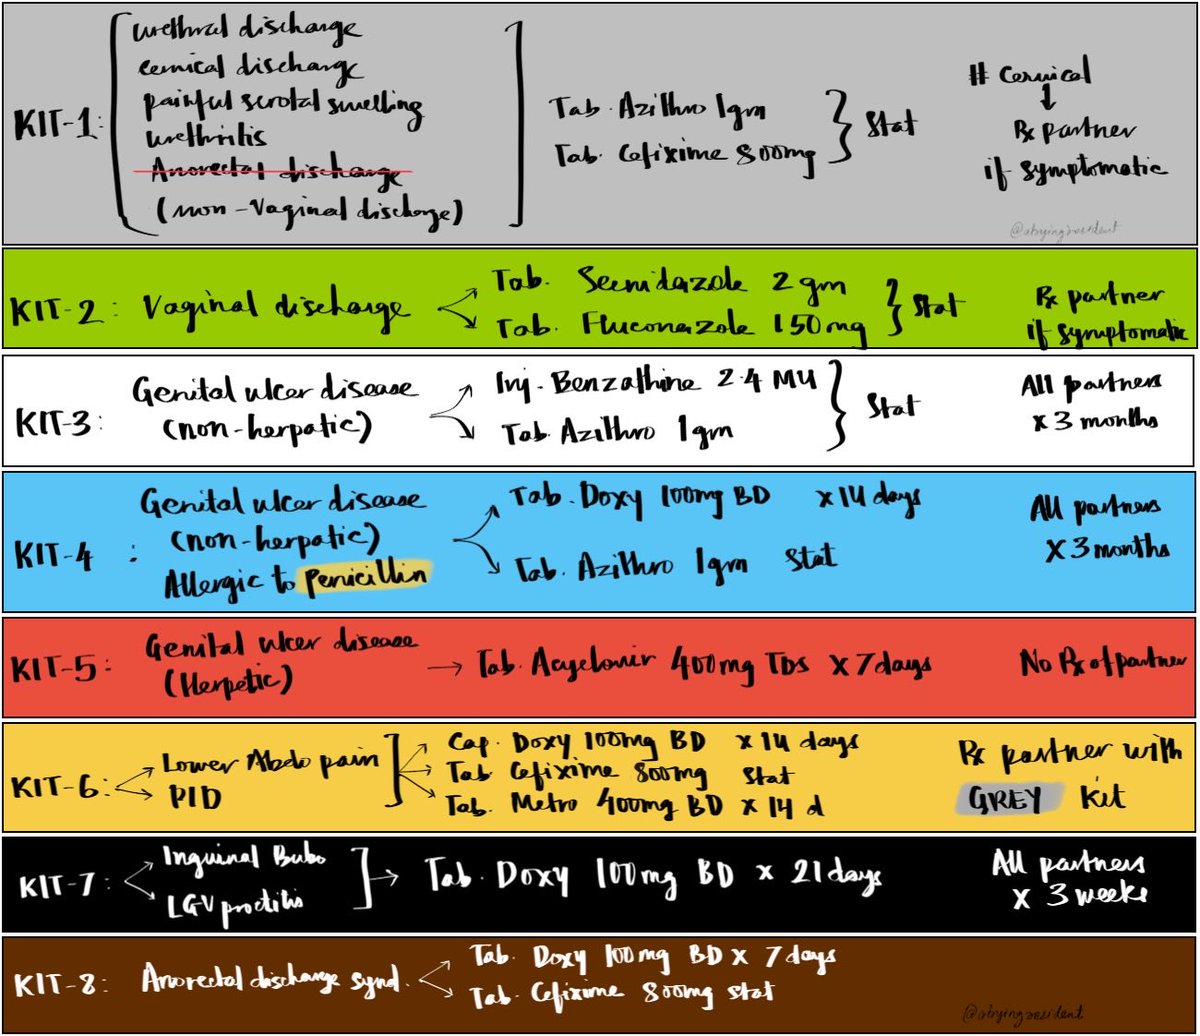 KIT-1:
urethral discharge
cervical discharge
painful scrotal swelling
urethritis
Anorectal discharge
(non-vaginal discharge)
Tab. Azithro 1gm
Tab. Cefixime 800mg
Stat
# Cervical
↓
Rx partner
if symptomatic
@atryingresident
KIT-2: Vaginal discharge
Tab. Secnidazole 2gm
Tab. Fluconazole 150mg
Stat
Rx partner
if symptomatic
KIT-3:
Genital ulcer disease
(non-herpatic)
Inj. Benzathine 2.4 MU
Tab. Azithro 1gm
Stat
All partners
x 3 months
KIT-4 :
Genital ulcer disease
(non-herpatic)
Allergic to Penicillin
Tab. Doxy 100mg BD x 14 days
Tab. Azithro 1gm Stat
All partners
X 3 months
KIT-5:
Genital ulcer disease
(Herpetic)
→ Tab. Acyclovir 400mg TDS x 7 days
No Rx of partner
KIT-6:
Lower Abdo pain
PID
Cap. Doxy 100mg BD x 14 days
Tab Cefixime 800mg Stat
Tab. Metro 400mg BD x 14 d
Rx partner with
GREY Kit
KIT-7
Inguinal Bubo
LGV proctitis
Tab. Doxy 100mg BD x 21 days
All partners
x 3 weeks
KIT-8: Anorectal discharge synd.
Tab. Doxy 100mg BD x 7 days
Tab. Cefixime 800mg Stat
@atryingresident